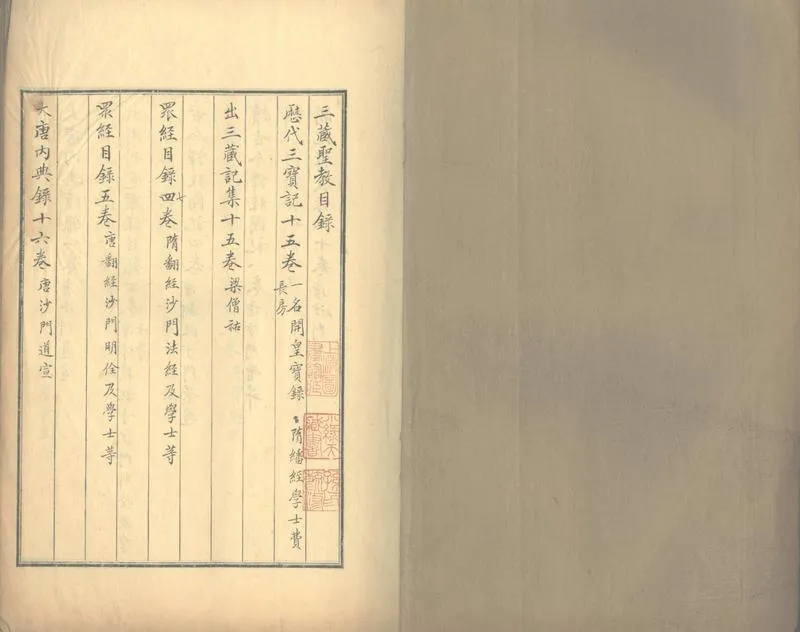 三藏聖教目録
歷代三寶記十五卷 一名開皇寶錄 隋繙經學士費
長房
出三藏記集十五卷 梁僧祐
眾經目録四卷 隋翻經沙門法経及學士等
七
眾經目録五卷 唐翻経沙門明佺及學士等
大唐內典錄十六卷 唐沙門道宣